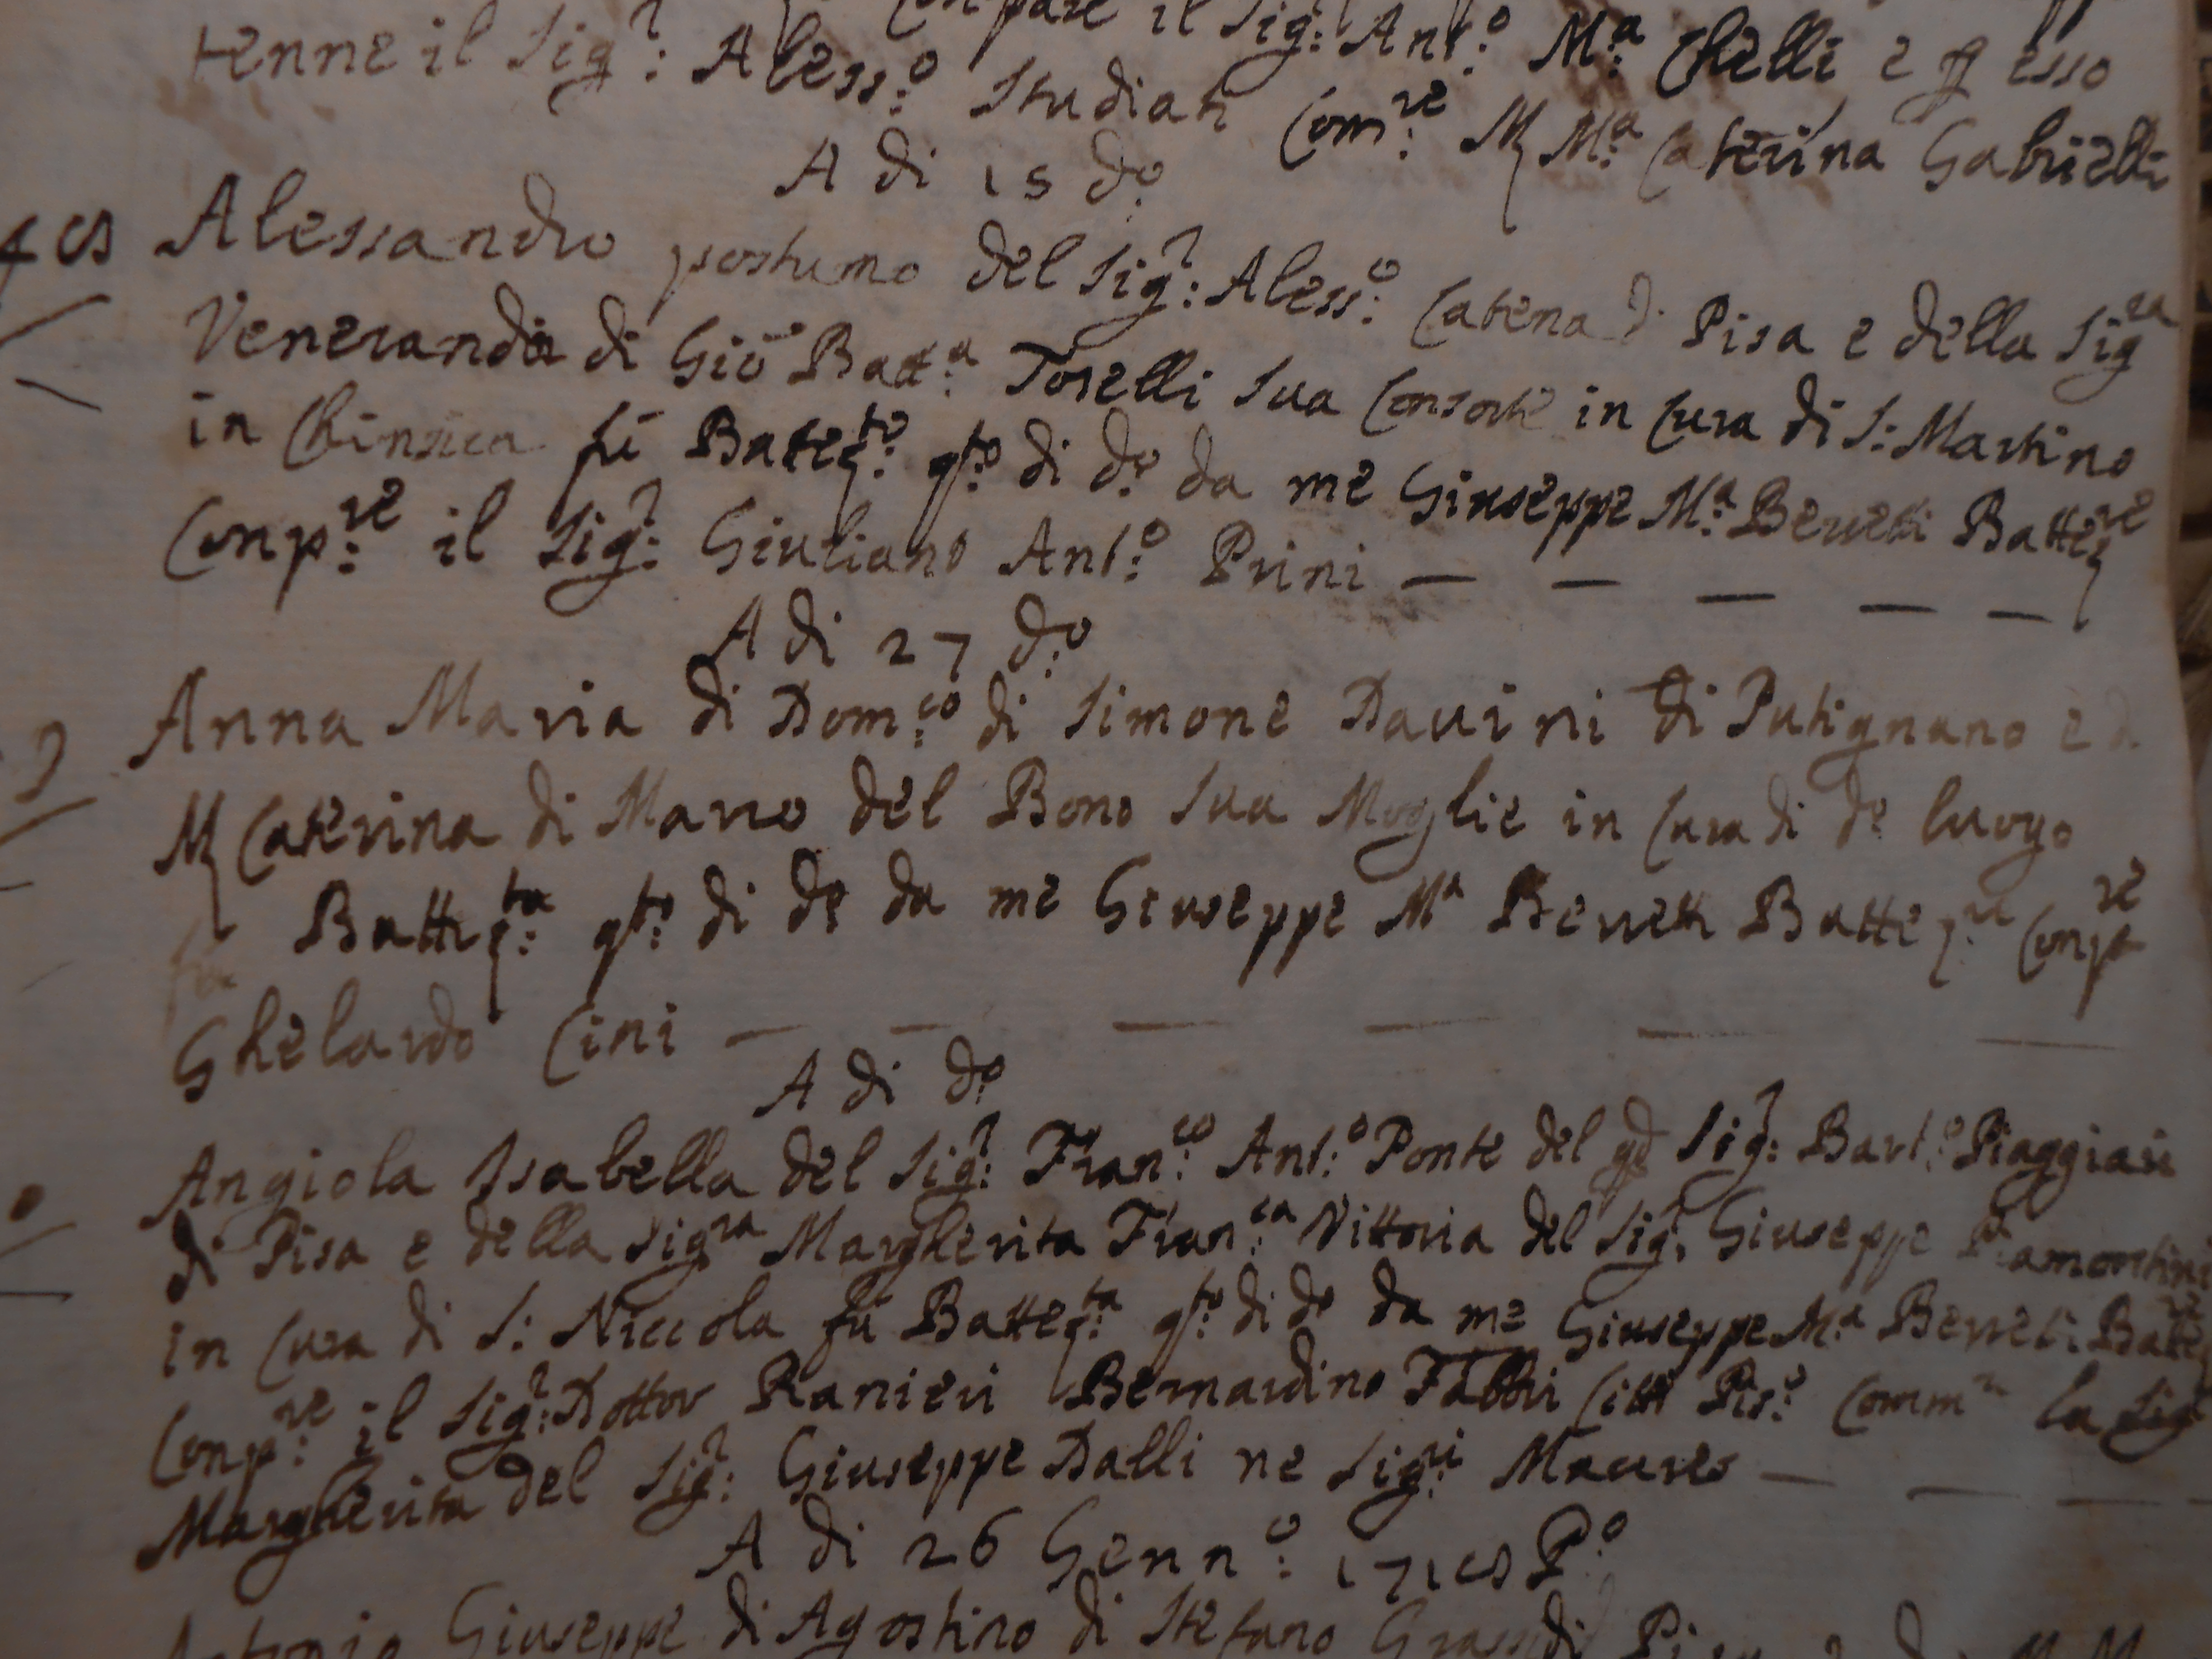 Conpare il Sig.r Ant.o M.a Chelli e p esso
tenne il Sig.r Aless.o Studiati Com.re M M.a Caterina Gabrielli
A di 15 d.o
Alessandro postumo del Sig.r Aless.o Catena di Pisa e della Sig.ra
Veneranda di Gio Batt.a Toselli sua Consorte in Cura di S: Martino
in Chinsica fu Battez.to q.to di d.o da me Giuseppe M.a Berreti Battez.re
Conp.re il Sig.r Giuliano Ant.o Prini — — — — —
A di 27 d.o
Anna Maria di Dom.co di Simone Davini di Putignano e d
M Caterina di Marco del Bono sua Moglie in Cura di d.o luogo
fu Battez.ta q.to di d.o da me Giuseppe M.a Berretti Battez.re Conp.re
Ghelardo Cini — — — — — —
A di d.o
Angiola Isabella del Sig.r Fran.co Ant.o Ponte del qd Sig.r Bart.o
di Pisa e della Sig.ra Margherita Fran.ca Vittoria del Sig.r Giuseppe
in Cura di S: Niccola fu Battez.ta q.to di d.o da me Giuseppe M.a Berreti Battez.re
Conp.re il Sig.r Dottor Ranieri Bernardino Fabbri Citt Pis.o Comm.re la Sig
Margherita del Sig.r Giuseppe Dalli ne Sig.ri — — —
A di 26 Genn.o 1715 P.o
Antonio Giuseppe di Agostino di Stefano Grassi di